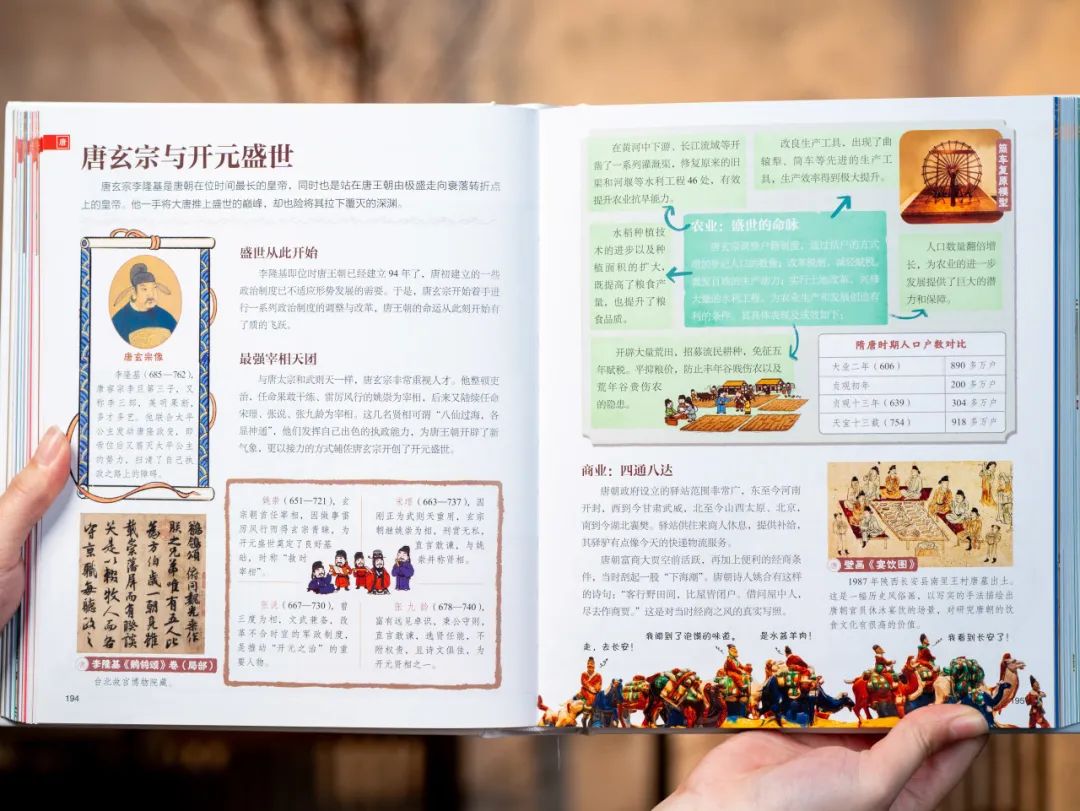 唐
唐玄宗与开元盛世
唐玄宗李隆基是唐朝在位时间最长的皇帝，同时也是站在唐王朝由极盛走向衰落转折点
上的皇帝。他一手将大唐推上盛世的巅峰，却也险将其拉下覆灭的深渊。
唐玄宗像
李隆基（685—762），
唐睿宗李旦第三子，又
称李三郎，英明果断，
多才多艺。他联合太平
公主发动唐隆政变，即
帝位后又赐死太平公主
的势力，扫清了自己执
政之路上的障碍。
李隆基《鹡鸰颂》卷（局部）
台北故宫博物院藏。
盛世从此开始
李隆基即位时唐王朝已经建立 94 年了，唐初建立的一些
政治制度已不适应形势发展的需要。于是，唐玄宗开始着手进
行一系列政治制度的调整与改革，唐王朝的命运从此刻开始有
了质的飞跃。
最强宰相天团
与唐太宗和武则天一样，唐玄宗非常重视人才。他整顿吏
治，任命果敢干练、雷厉风行的姚崇为宰相，后来又陆续任命
宋璟、张说、张九龄等宰相。这几名贤相可谓“八仙过海，各
显神通”，他们发挥自己出色的执政能力，为唐王朝开辟了新
气象，更以接力的方式辅佐唐玄宗开创了开元盛世。
姚崇（651—721），玄
宗朝首任宰相，因做事雷
厉风行而得玄宗青睐，为
开元盛世奠定了良好基
础，时称“救时
宰相”。
宋璟（663—737），因
刚正为武则天重用，玄宗
朝继姚崇为相，刑赏无私，
直言敢谏，与姚
崇并称贤相。
张说（667—730），曾
三度为相，文武兼备，改
革不合时宜的军政制度，
是推动“开元之治”的重
要人物。
张九龄（678—740），
富有远见卓识，秉公守则，
直言敢谏，选贤任能，不
附权贵，且诗文俱佳，为
开元贤相之一。
194
在黄河中下游、长江流域等开
凿了一系列灌溉渠，修复原来的旧
渠和河堰等水利工程 46 处，有效
提升农业抗旱能力。
改良生产工具，出现了曲
辕犁、筒车等先进的生产工
具，生产效率得到极大提升。
筒车复原模型
水稻种植技
术的进步以及种
植面积的扩大，
既提高了粮食产
量，也提升了粮
食品质。
农业：盛世的命脉
人口数量翻倍增
长，为农业的进一步
发展提供了巨大的潜
力和保障。
开辟大量荒田，招募流民耕种，免征五
年赋税。平抑粮价，防止丰年谷贱伤农以及
荒年谷贵伤农
的隐患。
隋唐时期人口户数对比
大业二年（606） 890 多万户
贞观初年 200 多万户
贞观十三年（639） 304 多万户
天宝十三载（754） 918 多万户
商业：四通八达
唐朝政府设立的驿站范围非常广，东至今河南
开封，西到今甘肃武威，北至今山西太原、北京，
南到今湖北襄樊。驿站供往来商人休息，提供补给，
其驿驴有点像今天的快递物流服务。
唐朝富商大贾空前活跃，再加上便利的经商条
件，当时刮起一股“下海潮”。唐朝诗人姚合有这样
的诗句：“客行野田间，比屋皆闭户。借问屋中人，
尽去作商贾。”这是对当时经商之风的真实写照。
壁画《宴饮图》
1987 年陕西长安县南里王村唐墓出土。
这是一幅历史风俗画，以写实的手法描绘出
唐朝官员休沐宴饮的场景，对研究唐朝的饮
食文化有很高的价值。
走，去长安！
我闻到了泡馍的味道。
是水盆羊肉！
我看到长安了！
195